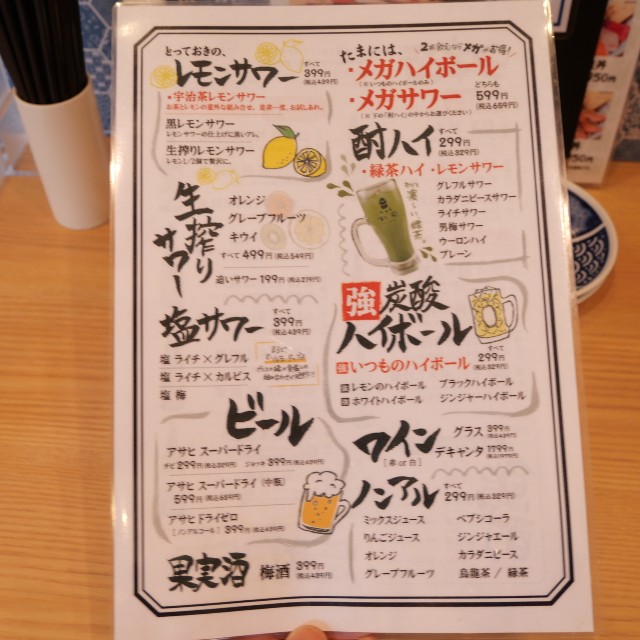 とっておきの、
レモンサワー すべて 399円 (税込439円)
・宇治茶レモンサワー
お茶とレモンの意外な組み合せ。是非一度、お試しあれ。
黒レモンサワー
レモンサワーの仕上げに黒いアレ。
生搾りレモンサワー
レモン1/2個で贅沢に。
生搾りサワー
オレンジ
グレープフルーツ
キウイ
すべて 499円 (税込549円)
追いサワー 199円 (税込219円)
塩サワー すべて 399円 (税込439円)
塩 ライチ×グレフル
塩 ライチ×カルピス
塩 梅
ビール
アサヒ スーパードライ
チビ 299円 (税込329円) ジョッキ 399円 (税込439円)
アサヒ スーパードライ (中瓶)
599円 (税込659円)
アサヒドライゼロ
[ノンアルコール] 399円 (税込439円)
果実酒 梅酒 399円 (税込439円)
たまには、
2杯飲むならメガがお得!
・メガハイボール
(※いつものハイボールのみ)
・メガサワー
(※下の「酎ハイ」の中からお選びください)
どちらも 599円 (税込659円)
酎ハイ すべて 299円 (税込329円)
・緑茶ハイ ・レモンサワー
グレフルサワー
カラダニピースサワー
ライチサワー
男梅サワー
ウーロンハイ
プレーン
強炭酸
ハイボール すべて 299円 (税込329円)
強 いつものハイボール
強 レモンのハイボール ブラックハイボール
強 ホワイトハイボール ジンジャーハイボール
ワイン
[赤 or 白]
グラス 399円 (税込439円)
デキャンタ 1799円 (税込1979円)
ノンアル すべて 299円 (税込329円)
ミックスジュース ペプシコーラ
りんごジュース ジンジャエール
オレンジ カラダニピース
グレープフルーツ 烏龍茶 / 緑茶